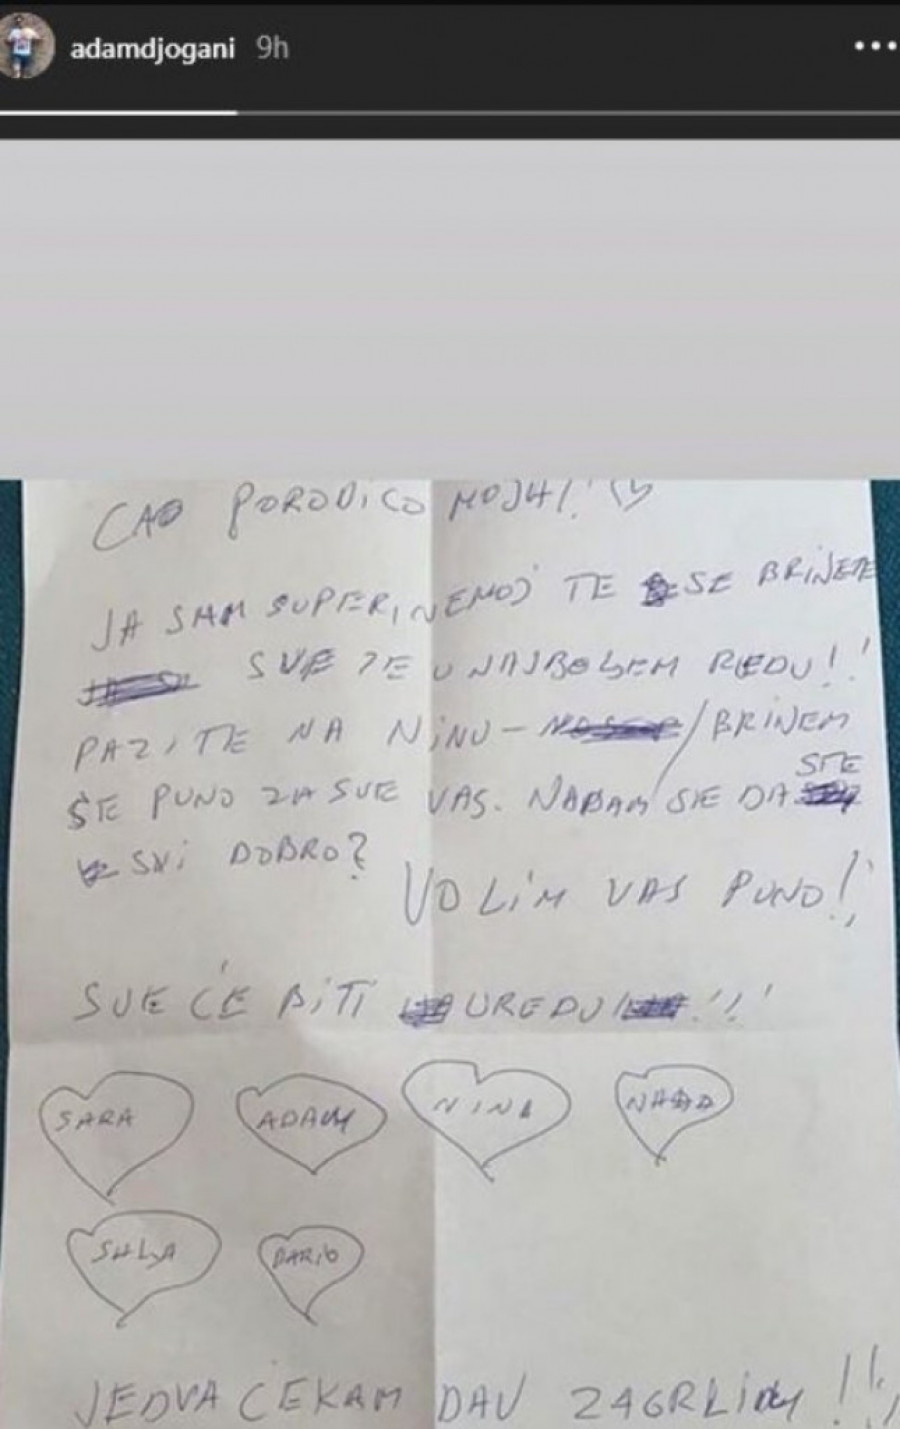 adamdjogani 9h
CAO PORODICO MOJA!
JA SAM SUPER, NEMOJ TE SE BRINETE
SVE JE U NAJBOLEM REDU!!
PAZITE NA NINU- / BRINEM
SE PUNO ZA SVE VAS. NADAM SE DA STE
SVI DOBRO?
VOLIM VAS PUNO!!
SVE ĆE BITI UREDU!!!
SARA ADAM NINA NAĐA
DARIO
JEDVA ČEKAM DAV ZAGRLIM !!